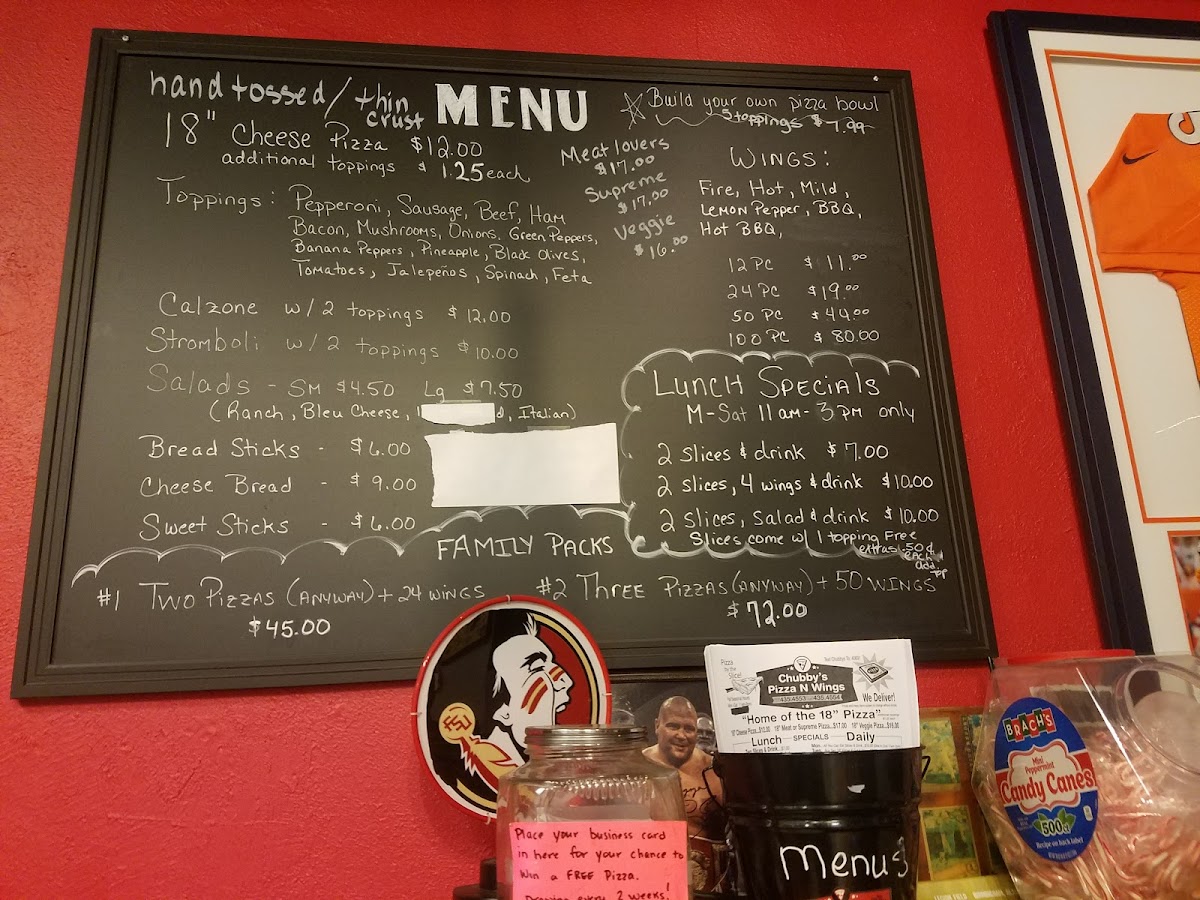 hand tossed / thin crust MENU
18" Cheese Pizza $12.00
additional toppings $1.25 each
Toppings: Pepperoni, Sausage, Beef, Ham
Bacon, Mushrooms, Onions, Green Peppers,
Banana Peppers, Pineapple, Black Olives,
Tomatoes, Jalepeños, Spinach, Feta
Calzone w/2 toppings $12.00
Stromboli w/2 toppings $10.00
Salads - SM $4.50 Lg $7.50
(Ranch, Bleu Cheese, d, Italian)
Bread Sticks - $6.00
Cheese Bread - $9.00
Sweet Sticks - $6.00
Meat lovers
$17.00
Supreme
$17.00
Veggie
$16.00
Build your own pizza bowl
5 toppings $7.99
WINGS:
Fire, Hot, Mild,
LEMON Pepper, BBQ,
Hot BBQ,
12 PC $11.00
24 PC $19.00
50 PC $44.00
100 PC $80.00
LUNCH SPECIALS
M-Sat 11am-3pm only
2 slices & drink $7.00
2 slices, 4 wings & drink $10.00
2 slices, salad & drink $10.00
Slices come w/ 1 topping Free
extras .50¢
each
add.
top
FAMILY PACKS
#1 TWO PIZZAS (ANYWAY) + 24 WINGS
$45.00
#2 THREE PIZZAS (ANYWAY) + 50 WINGS
$72.00
FSU
Pizza
by the
Slice!
Chubby's
Pizza N Wings
We Deliver!
"Home of the 18" Pizza"
18" Cheese Pizza...$12.00 18" Meat or Supreme Pizza...$17.00 18" Veggie Pizza...$16.00
Lunch SPECIALS Daily
Menus
Place your business card
in here for your chance to
win a FREE Pizza.
Drawing every 2 weeks!
BRACH'S
Mini
Peppermint
Candy Canes
500ct
Recipe on back label